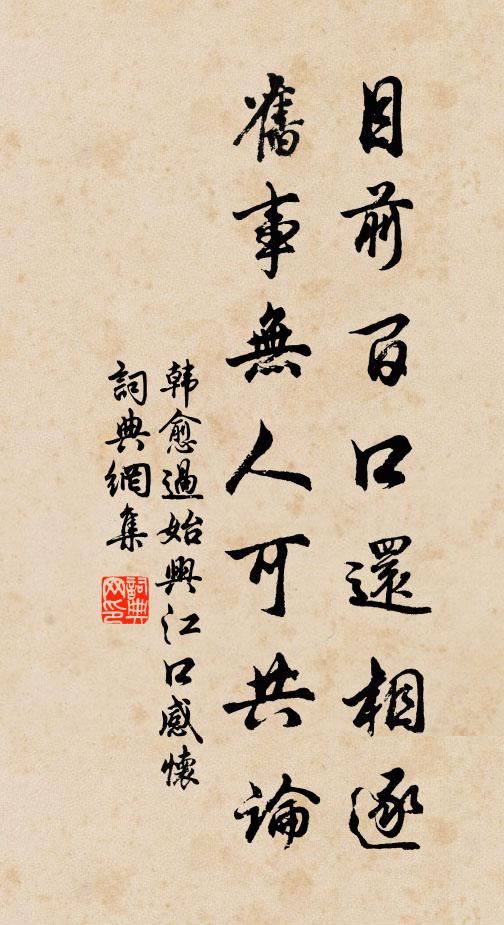 目前百口還相逐
舊事無人可共論
韩愈過始興江口感懷
詞典網集
詞典
网印